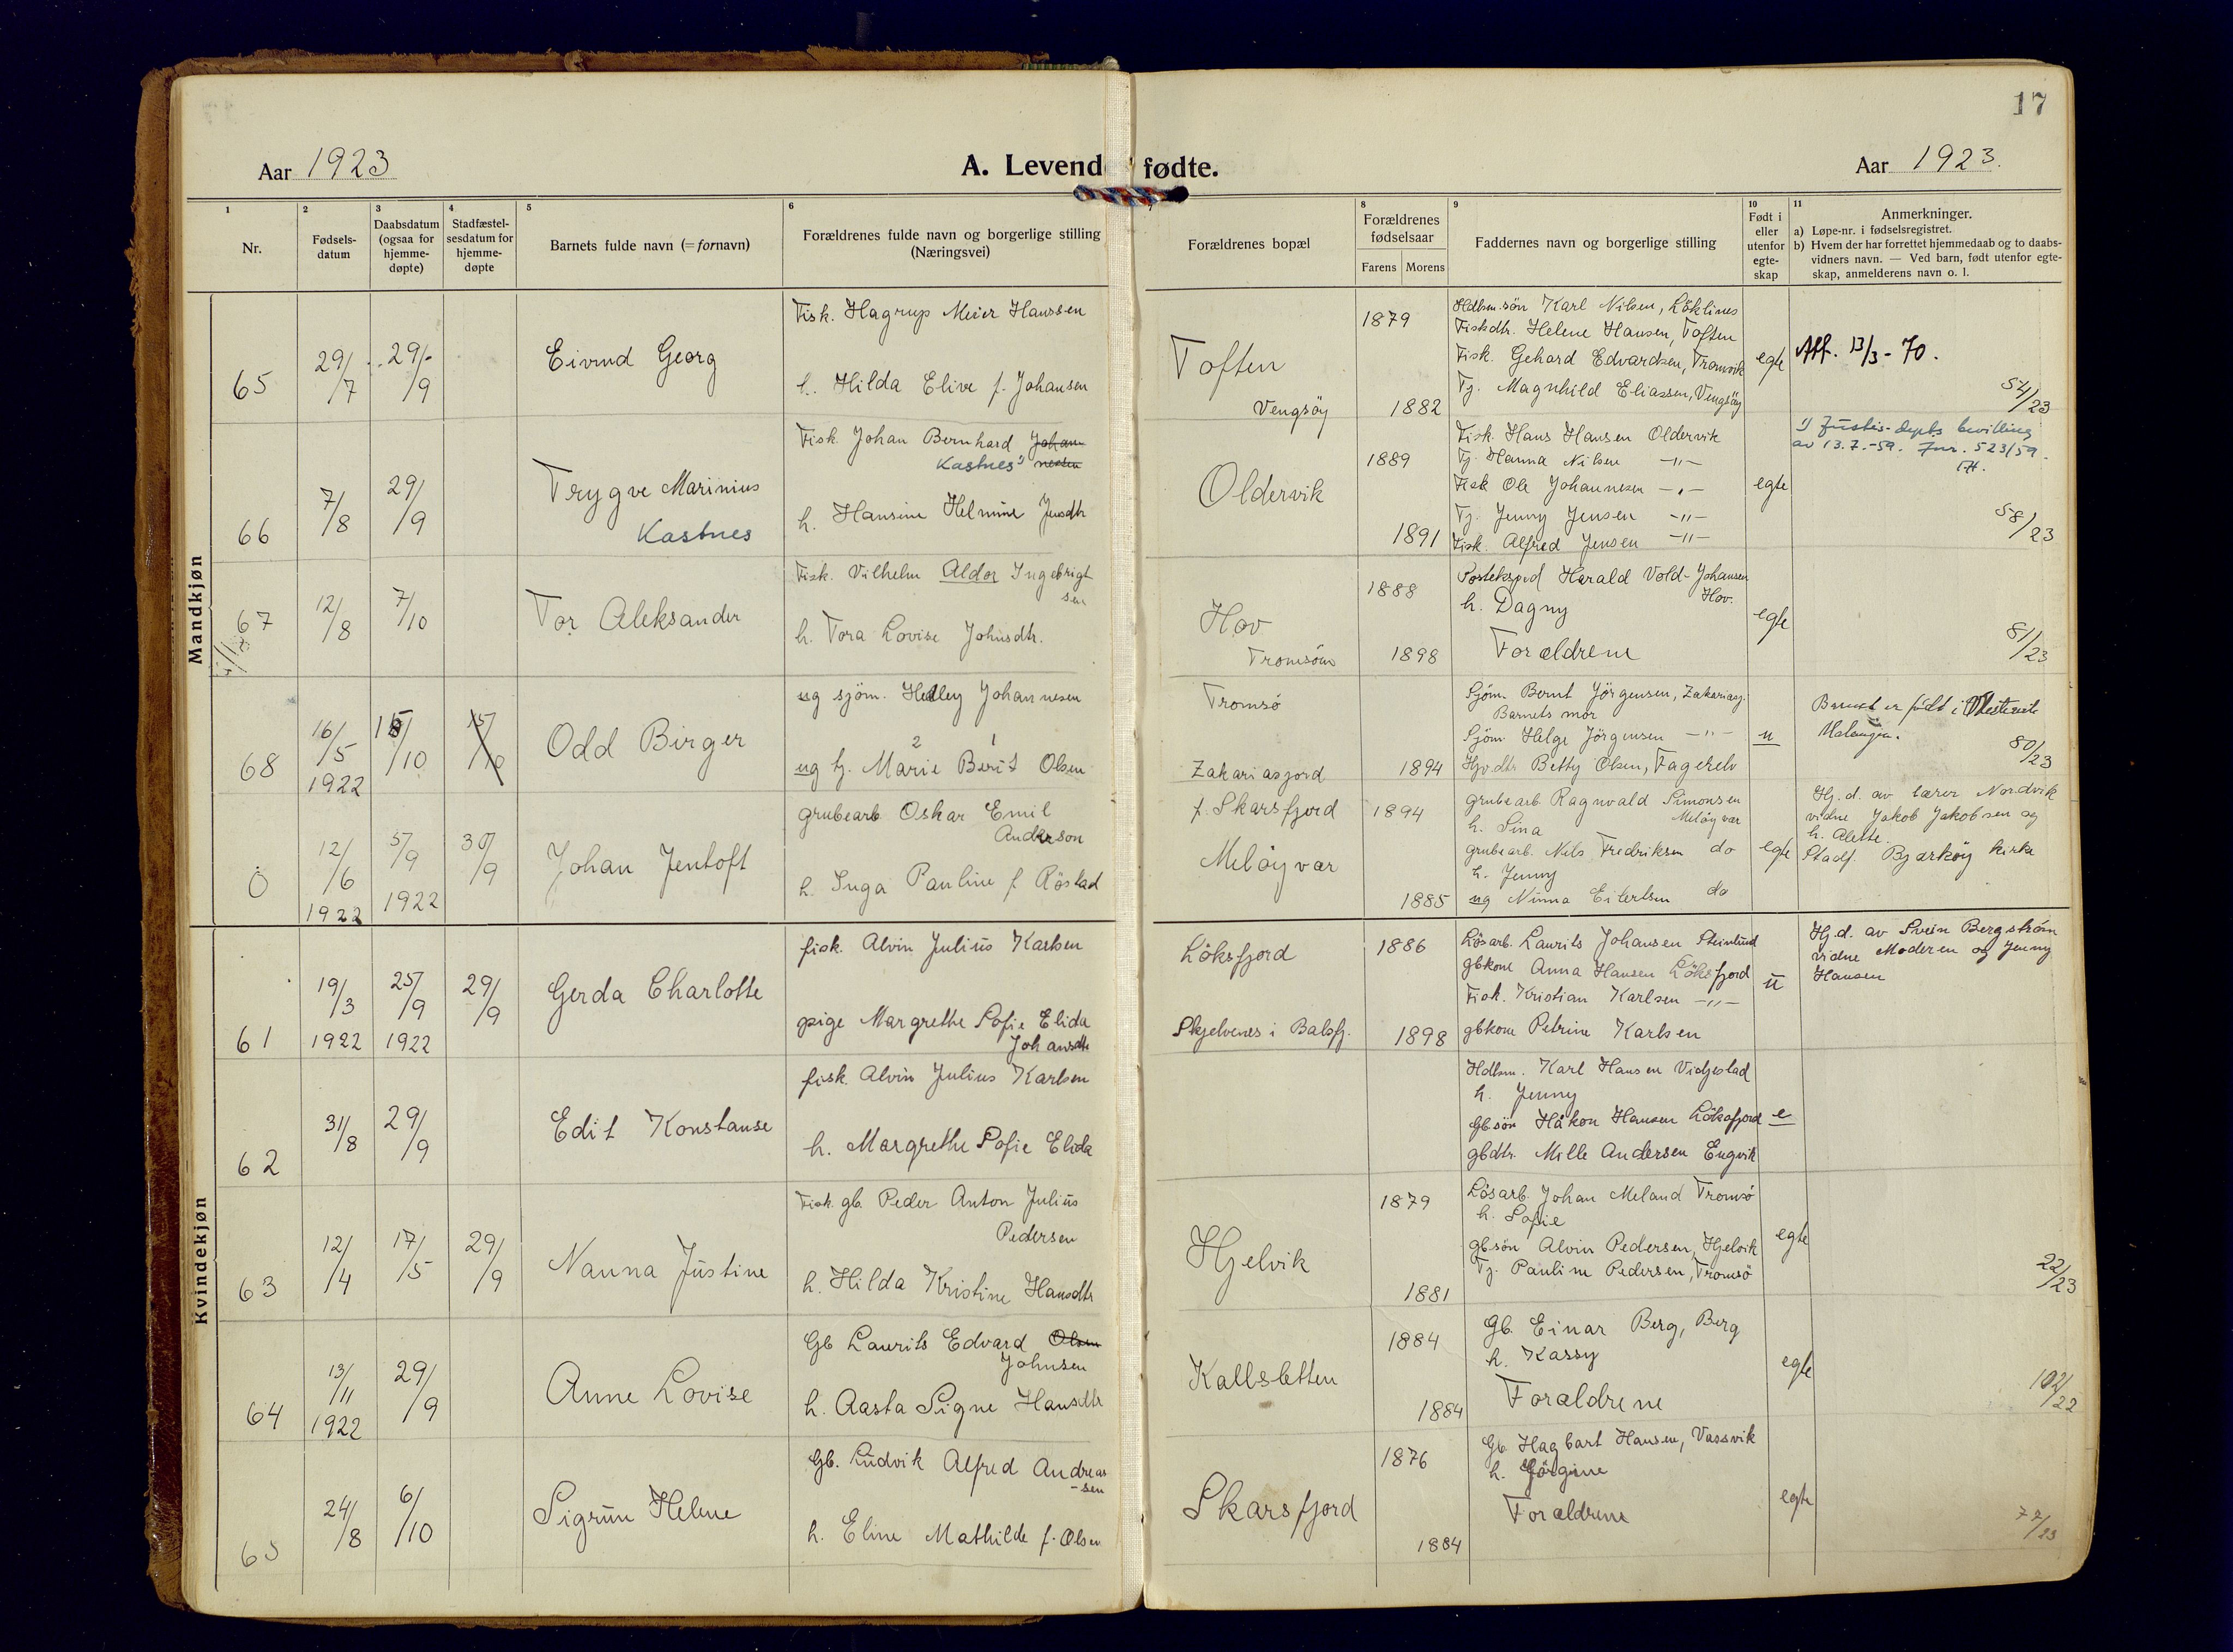 17
Aar 1923
A. Levende fødte.
Aar 1923.
1
2
3
4
5
6
8
9
10
11
Nr.
Fødsels-
datum
Daabsdatum
(ogsaa for
hjemme-
døpte)
Stadfæstel-
sesdatum for
hjemme-
døpte
Barnets fulde navn (= fornavn)
Forældrenes fulde navn og borgerlige stilling
(Næringsvei)
Forældrenes bopæl
Forældrenes
fødselsaar
Farens Morens
Faddernes navn og borgerlige stilling
Født i
eller
utenfor
egte-
skap
Anmerkninger.
a) Løpe-nr. i fødselsregistret.
b) Hvem der har forrettet hjemmedaab og to daabs-
vidners navn. — Ved barn, født utenfor egte-
skap, anmelderens navn o. l.
Mandkjøn
65
29/7
29/9
Eivind Georg
Fisk. Hagrup Meier Hanssen
h. Hilda Elive f. Johansen
Toften
Vengsøy
1879
1882
Hdlsm.søn Karl Nilsen, Løklines
Fiskdtr. Helene Hansen, Toften
Fisk. Gehard Edvardsen, Tromvik
Tj. Magnhild Eliassen, Vengsøy
egte
Att. 13/3 - 70.
54/23
66
7/8
29/9
Trygve Marinius
Kastnes
Fisk. Johan Bernhard Johan-
Kastnes 1) nesen
h. Hansine Helmine Jensdtr
Oldervik
1889
1891
Fisk. Hans Hansen Oldervik
Tj. Hanna Nilsen -"-
Fisk Ole Johannesen -"-
Tj. Jenny Jensen -"-
Fisk. Alfred Jensen -"-
egte
1) Justis-depts bevilling
av 13.7.-59. Jnr. 523/59.
58/23
67
12/8
7/10
Tor Aleksander
Fisk. Vilhelm Aldor Ingebrigt
sen
h. Tora Lovise Johnsdtr.
Hov
Tromsøen
1888
1898
Postekspd Harald Vold-Johansen
h. Dagny Hov.
Forældrene
egte
81/23
68
16/5
1922
15/10
15/10
Odd Birger
ug sjöm. Hedley Johannesen
2 1
ug tj. Marie Berit Olsen
Tromsø
Zakariasjord
1894
Sjöm. Bernt Jörgensen, Zakariasj.
Barnets mor
Sjöm Helge Jörgensen -"-
Hjv.dtr Betty Olsen, Fagerelv
u
Barnet er født i
Malangen.
80/23
0
12/6
1922
5/9
1922
30/9
Johan Jentoft
grubearb. Oskar Emil
Anderson
h. Inga Pauline f. Röstad
f. Skarsfjord
Meløyvær
1894
1885
grubearb. Ragnvald Simonsen
h. Sina Meløyvær
grubearb. Nils Fredriksen do
h. Jenny
ug Ninna Eilertsen do
egte
Hj. d. av lærer Nordvik
vidne Jakob Jakobsen og
h. Alette.
Stadf. Bjarkøy kirke
Kvindekjøn
61
19/3
1922
25/9
1922
29/9
Gerda Charlotte
fisk. Alvin Julius Karlsen
pige Margrethe Sofie Elida
Johansdtr
Løksfjord
Skjelvenes i Balsfj.
1886
1898
Lösarb. Laurits Johansen Steinlund
gbkone Anna Hansen Løksfjord
Fisk. Kristian Karlsen -"-
gbkone Petrine Karlsen
u
Hj.d. av Svein Bergström
vidne Moderen og Jenny
Hansen
62
31/8
29/9
Edit Konstanse
fisk. Alvin Julius Karlsen
h. Margrethe Sofie Elida
Hdlsm. Karl Hansen Vidjestad
h. Jenny
Gbsön Håkon Hansen Løksfjord
gbdtr. Mille Andersen Engvik
e
63
12/4
17/5
29/9
Nanna Justine
Fisk. gb. Peder Anton Julius
Pedersen
h. Hilda Kristine Hansdtr
Hjelvik
1879
1881
Lösarb. Johan Meland Tromsø
h. Sofie
gbsön Alvin Pedersen, Hjelvik
Tj. Pauline Pedersen, Tromsø
egte
22/23
64
13/11
1922
29/9
Anne Lovise
Gb Laurits Edvard Olsen
Johnsen
h. Aasta Signe Hansdtr
Kallsletten
1884
1884
Gb. Einar Berg, Berg
h. Kassy
Forældrene
egte
102/22
65
24/8
6/10
Sigrun Helene
Gb. Ludvik Alfred Andreas
-sen
h. Eline Mathilde f. Olsen
Skarsfjord
1876
1884
Gb Hagbart Hansen, Vassvik
h. Jörgine
Forældrene
egte
77/23